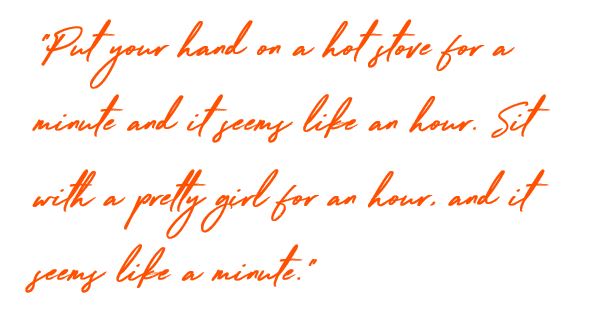 "Put your hand on a hot stove for a
minute and it seems like an hour. Sit
with a pretty girl for an hour, and it
seems like a minute."